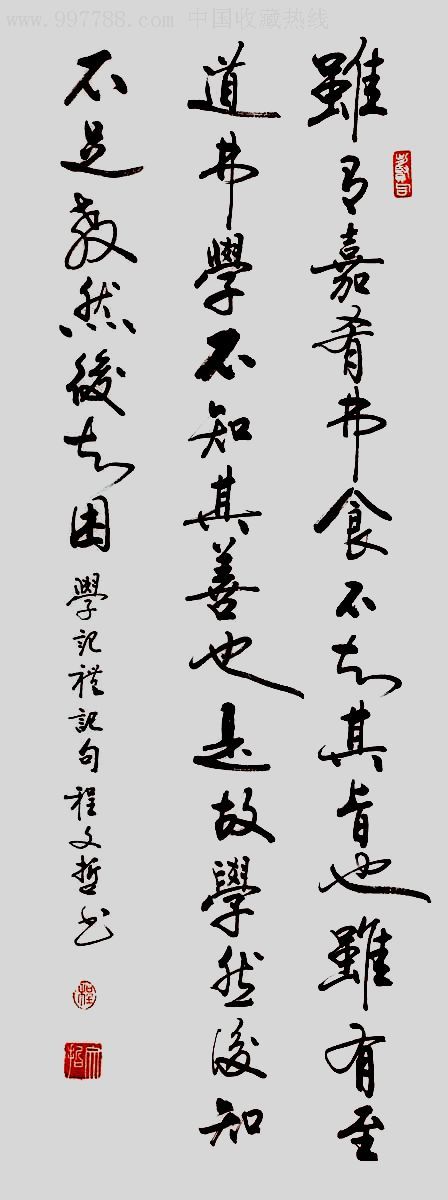 www.997788.com 中国收藏热线
雖有嘉肴弗食不知其旨也雖有至
道弗學不知其善也是故學然後知
不足教然後知困
學記禮記句程文哲书
程